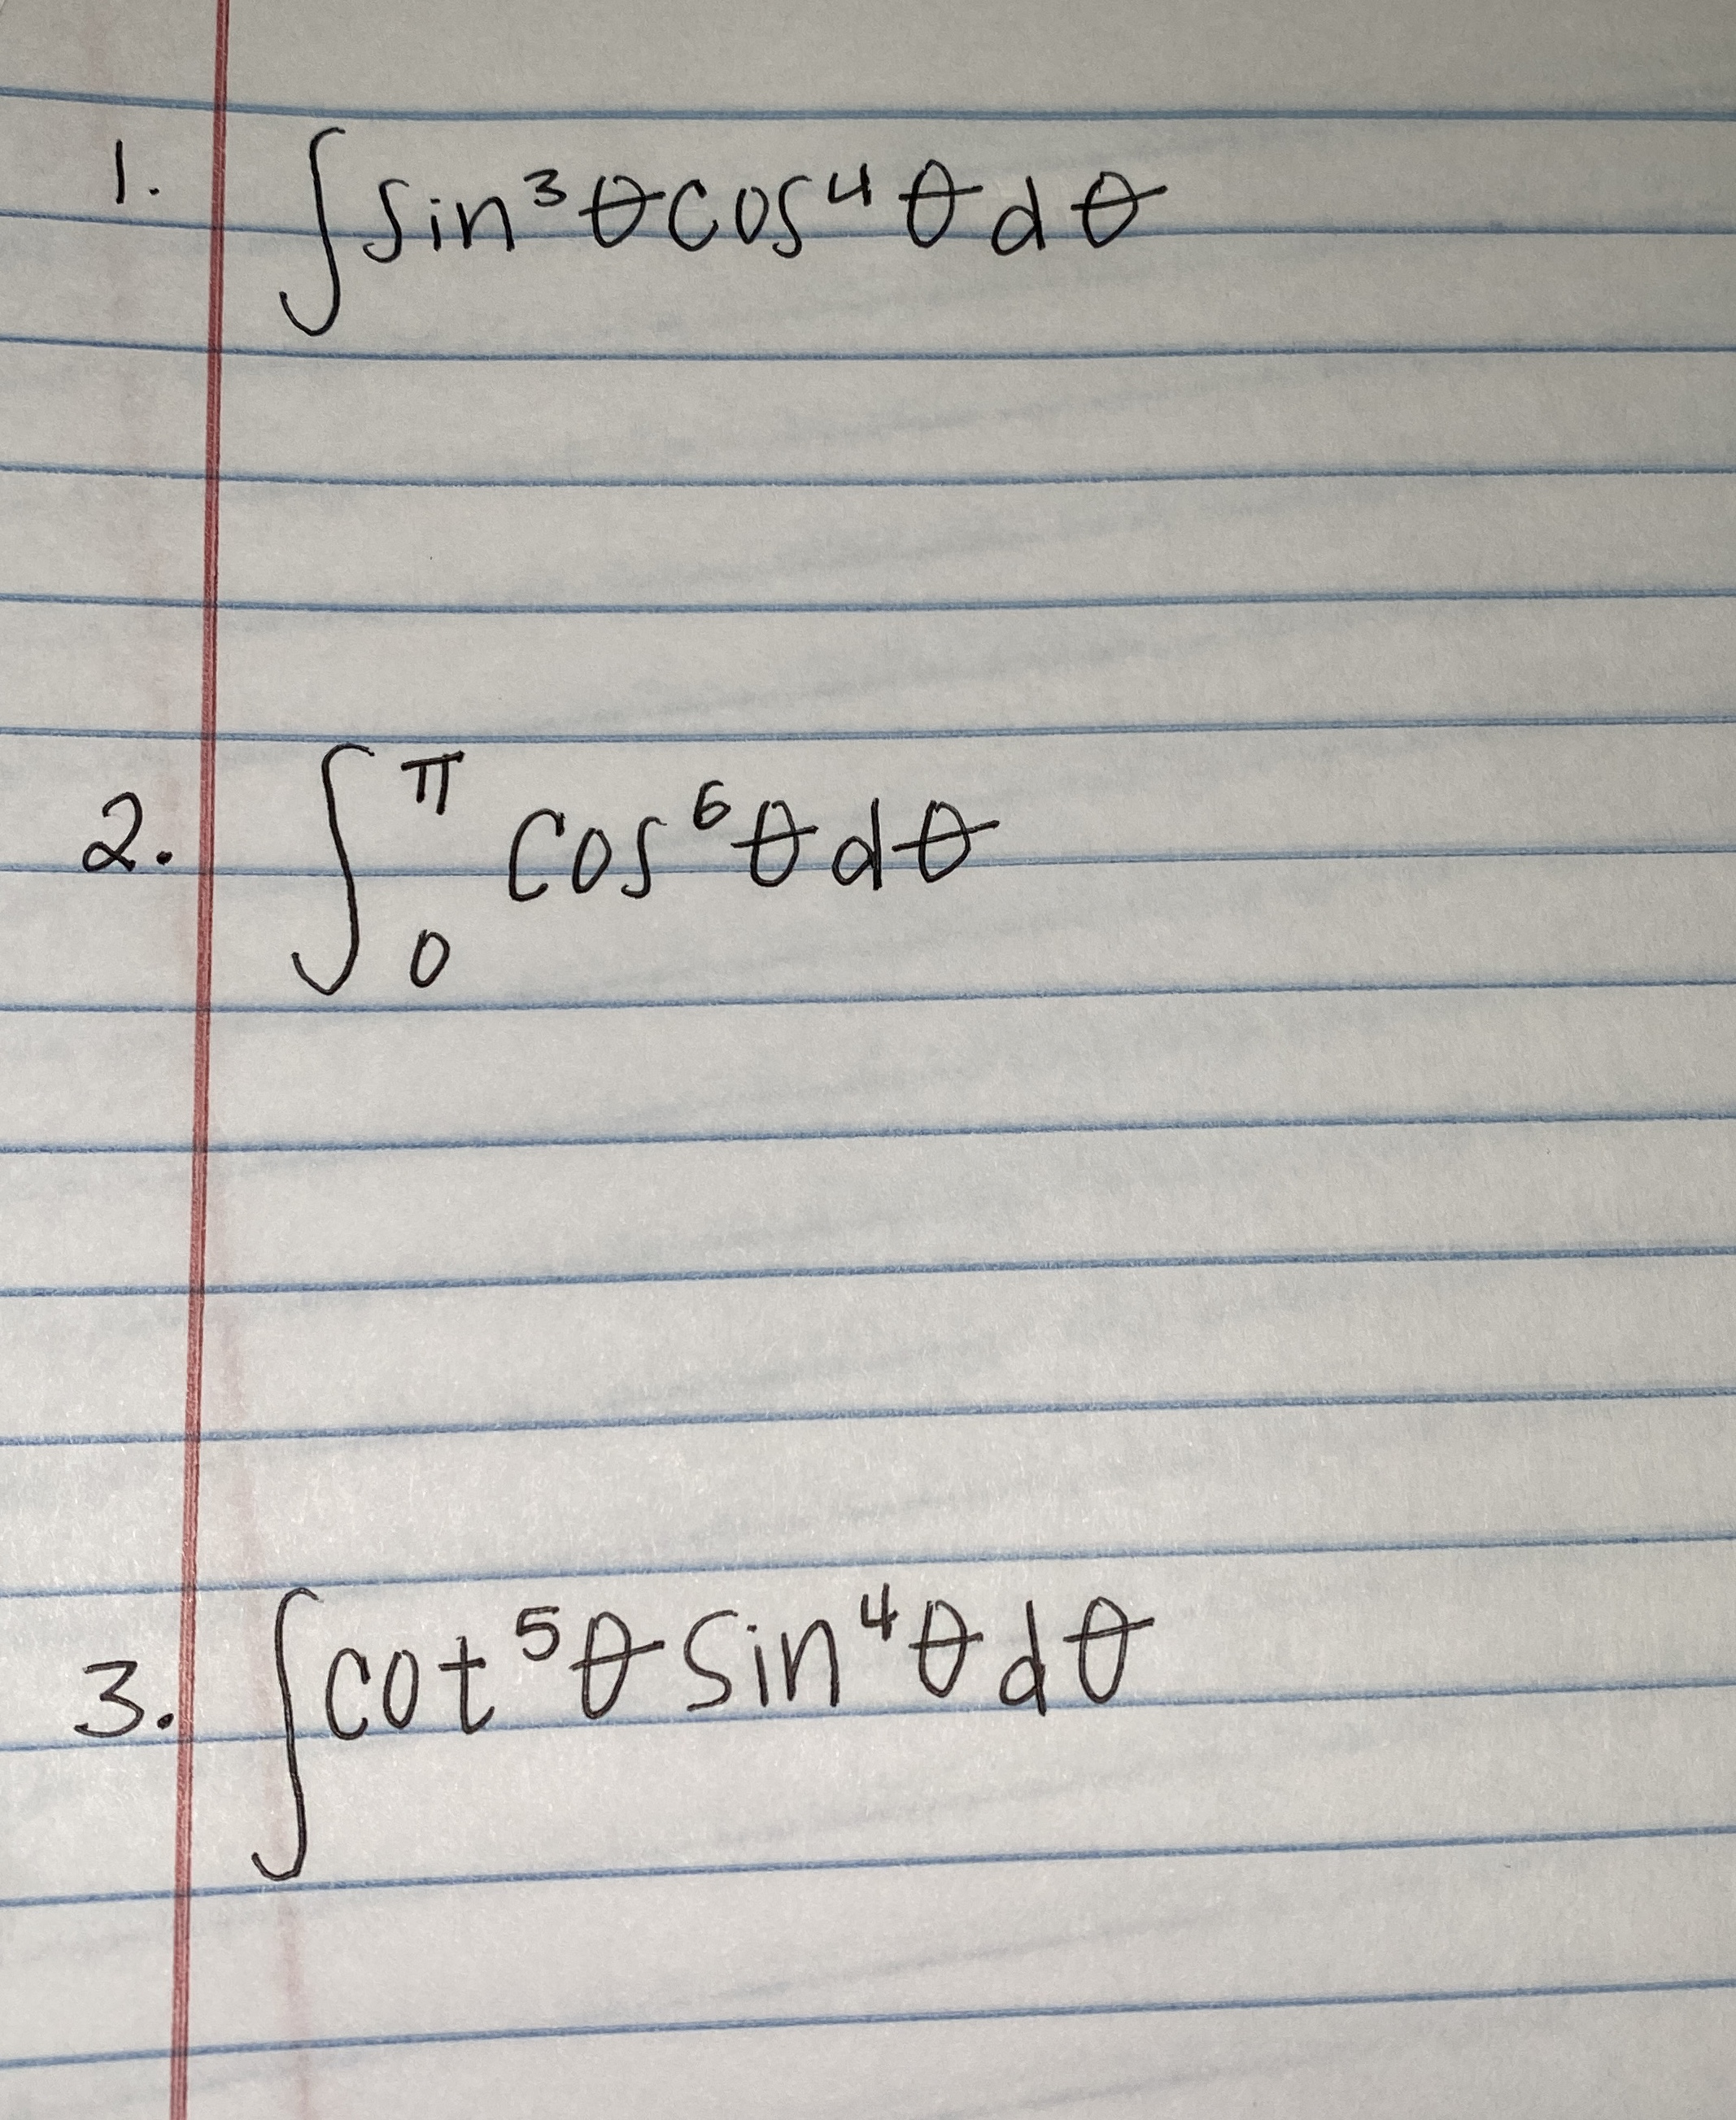 1. ∫ sin³θ cos⁴θ dθ
2. ∫₀^π cos⁶θ dθ
3. ∫ cot⁵θ sin⁴θ dθ